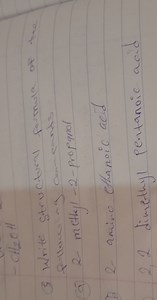 -CH2OH
③ Write structural formula of the
following compounds
ⓐ 2- methyl-2-propanol
2- amino ethanoic acid
2, 2 dimethyl Pentanoic acid